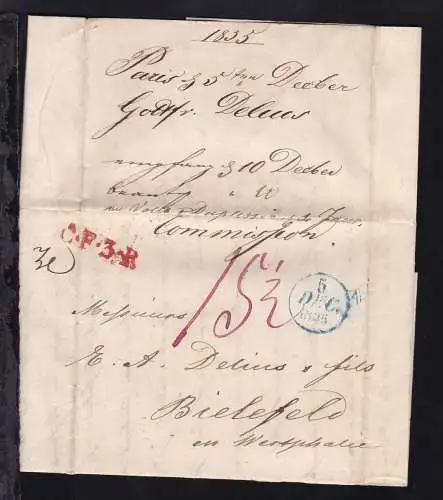 1835
Paris d 5 ten Decber
Godfr. Delius
empfang d 10 Decber
beantw
Commission
C.F.3.R
15½
5
DEC.
1835
Messieurs
E. A. Delius & fils
Bielefeld
en Westphalie